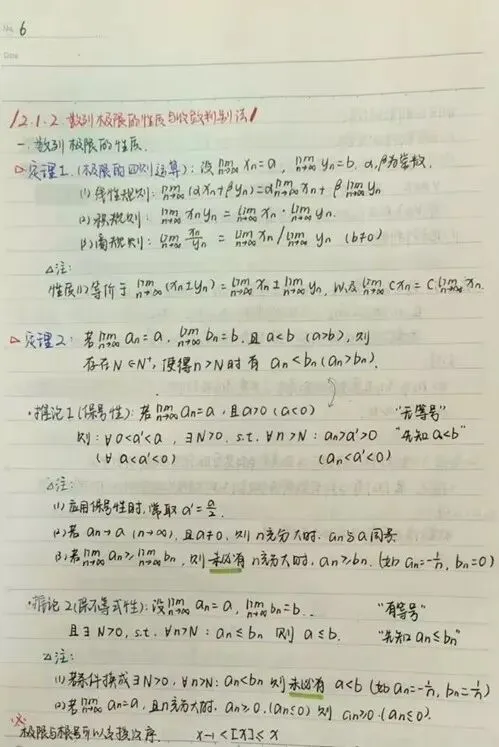 No. 6
Date
12.1.2 数列极限的性质与收敛判别法
一. 数列极限的性质.
▷定理1. (极限的四则运算): 设 lim_{n→∞} xn = a, lim_{n→∞} yn = b. α, β为常数.
(1) 线性规则: lim_{n→∞} (αxn + βyn) = α lim_{n→∞} xn + β lim_{n→∞} yn
(2) 积规则: lim_{n→∞} xnyn = lim_{n→∞} xn · lim_{n→∞} yn.
(3) 商规则: lim_{n→∞} xn/yn = lim_{n→∞} xn / lim_{n→∞} yn (b≠0)
△注:
性质(1)等价于 lim_{n→∞} (xn ± yn) = lim_{n→∞} xn ± lim_{n→∞} yn, 以及 lim_{n→∞} Cxn = C lim_{n→∞} xn.
▷定理2: 若 lim_{n→∞} an = a, lim_{n→∞} bn = b, 且 a<b (a>b), 则
存在 N∈N⁺, 使得 n>N 时有 an<bn (an>bn).
·推论1 (保号性): 若 lim_{n→∞} an = a, 且 a>0 (a<0) "无等号"
则: ∀ 0<a'<a, ∃N>0. s.t. ∀n>N: an>a'>0 "先知 a<b"
(∀ a<a'<0) (an<a'<0)
△注:
(1) 应用保号性时, 常取 a' = a/2.
(2) 若 an→a (n→∞), 且 a≠0, 则 n充分大时. an与a同号
(3) 若 lim_{n→∞} an ≥ lim_{n→∞} bn, 则未必有 n充分大时, an≥bn. (如 an = -1/n, bn = 0)
·推论2 (保不等式性): 设 lim_{n→∞} an = a, lim_{n→∞} bn = b. "有等号"
且 ∃N>0, s.t. ∀n>N: an≤bn 则 a≤b. "先知 an≤bn"
△注:
(1) 若条件换成 ∃N>0, ∀n>N: an<bn 则未必有 a<b (如 an = -1/n, bn = 1/n)
(2) 若 lim_{n→∞} an = a, 且 n充分大时, an≥0. (an≤0) 则 a≥0 (a≤0).
※
极限与根号可以交换次序. x-1 < [x] ≤ x